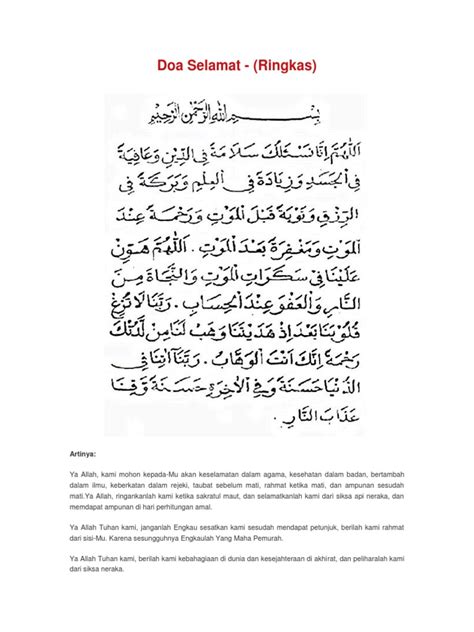 Doa Selamat - (Ringkas)
بِسْمِ اللهِ الرَّحْمٰنِ الرَّحِيْمِ
اَللّٰهُمَّ اِنَّا نَسْئَلُكَ سَلَامَةً فِى الدِّيْنِ وَعَافِيَةً
فِى الْجَسَدِ وَزِيَادَةً فِى الْعِلْمِ وَبَرَكَةً فِى
الرِّزْقِ وَتَوْبَةً قَبْلَ الْمَوْتِ وَرَحْمَةً عِنْدَ
الْمَوْتِ وَمَغْفِرَةً بَعْدَ الْمَوْتِ . اَللّٰهُمَّ هَوِّنْ
عَلَيْنَا فِى سَكَرَاتِ الْمَوْتِ وَالنَّجَاةَ مِنَ
النَّارِ وَالْعَفْوَ عِنْدَ الْحِسَابِ . رَبَّنَا لَا تُزِغْ
قُلُوْبَنَا بَعْدَ اِذْ هَدَيْتَنَا وَهَبْ لَنَا مِنْ لَدُنْكَ
رَحْمَةً اِنَّكَ اَنْتَ الْوَهَّابُ . رَبَّنَا اٰتِنَا فِى
الدُّنْيَا حَسَنَةً وَفِى الْاٰخِرَةِ حَسَنَةً وَقِنَا
عَذَابَ النَّارِ .
Artinya:
Ya Allah, kami mohon kepada-Mu akan keselamatan dalam agama, kesehatan dalam badan, bertambah
dalam ilmu, keberkatan dalam rejeki, taubat sebelum mati, rahmat ketika mati, dan ampunan sesudah
mati.Ya Allah, ringankanlah kami ketika sakratul maut, dan selamatkanlah kami dari siksa api neraka, dan
mendapat ampunan di hari perhitungan amal.
Ya Allah Tuhan kami, janganlah Engkau sesatkan kami sesudah mendapat petunjuk, berilah kami rahmat
dari sisi-Mu. Karena sesungguhnya Engkaulah Yang Maha Pemurah.
Ya Allah Tuhan kami, berilah kami kebahagiaan di dunia dan kesejahteraan di akhirat, dan peliharalah kami
dari siksa neraka.